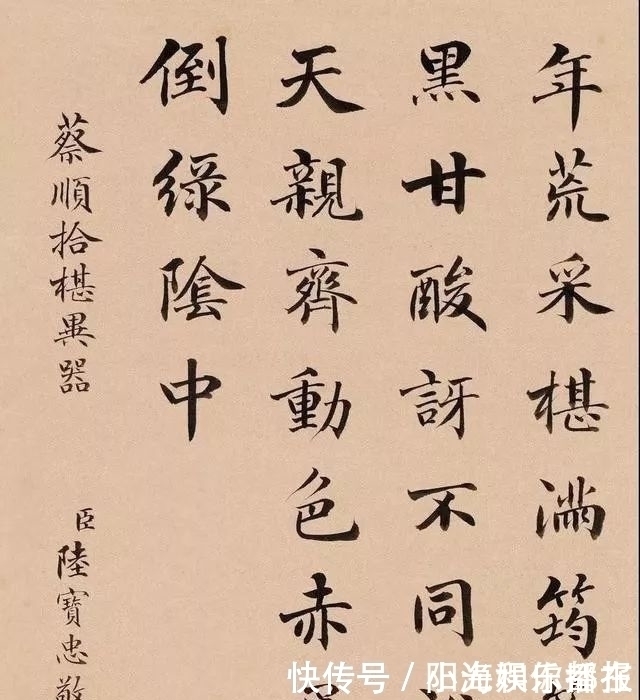 年荒采椹滿筠
黑甘酸訝不同
天親齊動色赤
倒綠陰中
蔡順拾椹異器
臣陸寶忠敬
快传号/阳